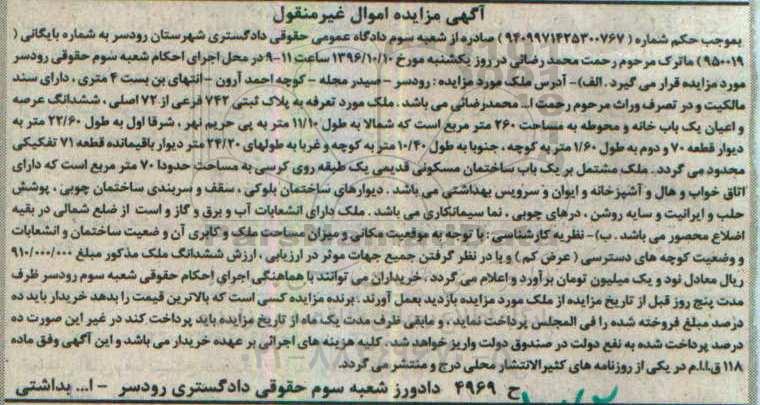 آگهی مزایده اموال غیرمنقول
بموجب حکم شماره (۹۴۰۹۹۷۱۴۲۵۳۰۰۷۶۷) صادره از شعبه سوم دادگاه عمومی حقوقی دادگستری شهرستان رودسر به شماره بایگانی (
۹۵۰۰۱۹) ماترک مرحوم رحمت محمد رضائی در روز یکشنبه مورخ ۱۳۹۶/۱۰/۱۰ ساعت ۱۱-۹ در محل اجرای احکام شعبه سوم حقوقی رودسر
مورد مزایده قرار می گیرد . الف)- آدرس ملک مورد مزایده : رودسر – صیدر محله – کوچه احمد آرون – انتهای بن بست ۴ متری ، دارای سند
مالکیت و در تصرف وراث مرحوم رحمت ا... محمدرضائی می باشد . ملک مورد تعرفه به پلاک ثبتی ۷۴۲ فرعی از ۷۲ اصلی ، ششدانگ عرصه
و اعیان یک باب خانه و محوطه به مساحت ۲۶۰ متر مربع است که شمالا به طول ۱۱/۱۰ متر به پی حریم نهر ، شرقا اول به طول ۲۲/۶۰ متر به
دیوار قطعه ۷۰ و دوم به طول ۱/۶۰ متر به کوچه ، جنوبا به طول ۱۰/۴۰ متر به کوچه و غربا به طولهای ۲۴/۲۰ متر دیوار باقیمانده قطعه ۷۱ تفکیکی
محدود می گردد . ملک مشتمل بر یک باب ساختمان مسکونی قدیمی یک طبقه روی کرسی به مساحت حدودا ۷۰ متر مربع است که دارای
اتاق خواب و هال و آشپزخانه و ایوان و سرویس بهداشتی می باشد . دیوارهای ساختمان بلوکی ، سقف و سربندی ساختمان چوبی ، پوشش
حلب و ایرانیت و سایه روشن ، درهای چوبی ، نما سیمانکاری می باشد . ملک دارای انشعابات آب و برق و گاز و است از ضلع شمالی در بقیه
اضلاع محصور می باشد . ب)- نظریه کارشناسی : با توجه به موقعیت مکانی و میزان مساحت ملک و کابری آن و ضعیت ساختمان و انشعابات
و وضعیت کوچه های دسترسی ( عرض کم ) و با در نظر گرفتن جمیع جهات موثر در ارزیابی ، ارزش ششدانگ ملک مذکور مبلغ ۹۱۰/۰۰۰/۰۰۰
ریال معادل نود و یک میلیون تومان برآورد و اعلام می گردد . خریداران می توانند با هماهنگی اجرای احکام حقوقی شعبه سوم رودسر ظرف
مدت پنج روز قبل از تاریخ مزایده از ملک مورد مزایده بازدید بعمل آورند . برنده مزایده کسی است که بالاترین قیمت را بدهد خریدار باید ده
درصد مبلغ فروخته شده را فی المجلس پرداخت نماید ، و مابقی ظرف مدت یک ماه از تاریخ مزایده باید پرداخت کند در غیر این صورت ده
درصد پرداخت شده به نفع دولت در صندوق دولت واریز خواهد شد . کلیه هزینه های اجرائی بر عهده خریدار می باشد و این آگهی وفق ماده
۱۱۸ ق.ا.ا.م در یکی از روزنامه های کثیرالانتشار محلی درج و منتشر می گردد.
ح ۴۹۶۹ دادورز شعبه سوم حقوقی دادگستری رودسر – ا... بداشتی